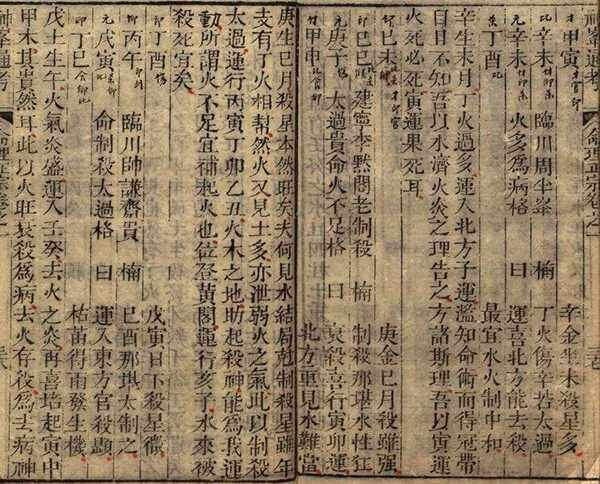 命理正宗卷之一
甲寅 辛金生未殺星多
辛未 臨川周半峯 楠 丁火傷辛苦太過
元 辛未 火多為病格 曰 運喜北方能去殺
丁酉 最宜水火制中和
辛生未月丁火過多運入北方子運濫知命術而得冠帶
日日不知吾以水濟火炎之理告之方諸斯理吾以寅運
火死必死寅運果死耳
己未 庚金巳月殺雖強
己巳 建寧李默閣老制殺 楠 制殺那堪水性狂
元 庚子 太過貴命火不足格 曰 衰殺喜行寅卯運
甲申 北方重見水難當
庚生巳月殺星本然旺矣夫何見水結局剋制殺星雖年
支有丁火相幫然火又見土多亦泄弱火之氣此以制殺
太過運行丙寅丁卯乙丑火木之地助起殺神能為我運
動所謂火不足宜補起火也位登黃閣運行亥子水來被
殺死宜矣
丁酉 戊寅日下殺星微
丙午 臨川帥謙齋貴 楠 巳酉那堪太制之
元 戊寅 命制殺太過格 曰 運入東方官殺顯
丁巳 枯苗得雨發生機
戊土生午火氣炎盛運入壬癸去火之炎再喜培起寅中
甲木其貴然耳此以火旺衰殺為病去火存殺為去病神
神峯通考 命理正宗卷之一